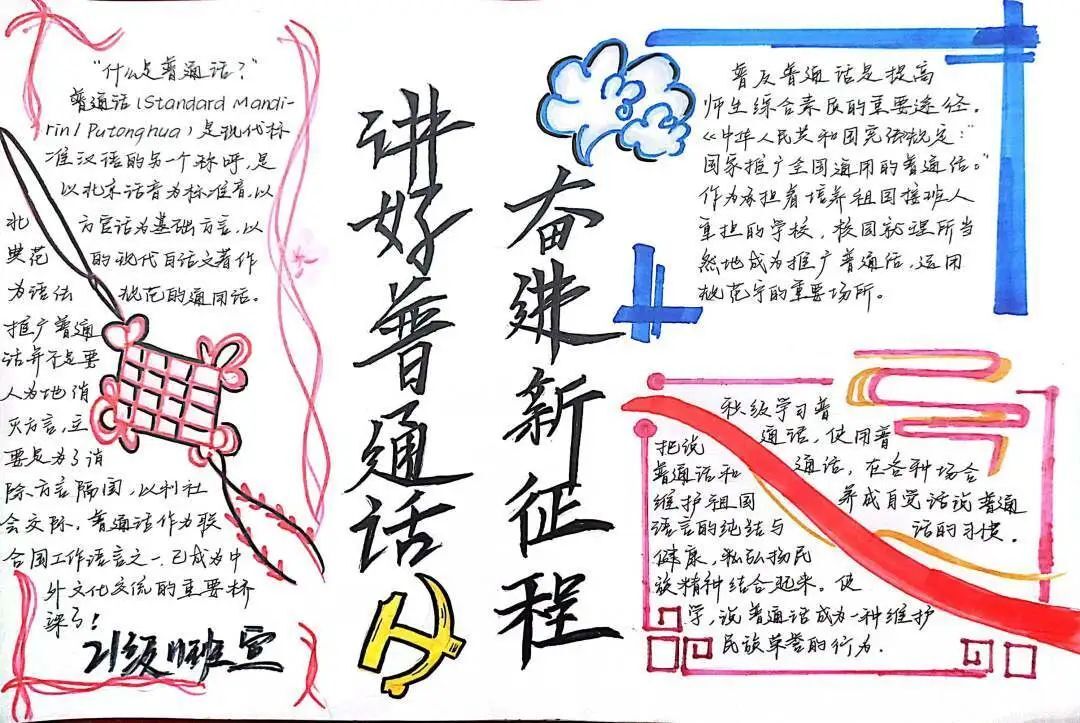 "什么是普通话？"
普通话(Standard Mandi-
rin/Putonghua)是现代标
准汉语的另一个称呼,是
以北京话音为标准音,以
北方官话为基础方言,以
典范的现代白话文著作
为语法规范的通用话。
推广普通
话并不是要
人为地消
灭方言,主
要是为了消
除方言隔阂,以利社
会交际,普通话作为联
合国工作语言之一已成为中
外文化交流的重要桥
梁了!
21级11班宣
讲好普通话
奋进新征程
普及普通话是提高
师生综合素质的重要途径。
《中华人民共和国宪法规定:"
国家推广全国通用的普通话。"
作为承担着培养祖国接班人
重担的学校,校园就理所当
然地成为推广普通话,运用
规范字的重要场所。
积极学习普
通话,使用普
通话,在各种场合
养成自觉话说普通
话的习惯.
把说
普通话和
维护祖国
语言的纯结与
健康,和弘扬民
族精神结合起来。使
学,说普通话成为一种维护
民族尊誉的行为.